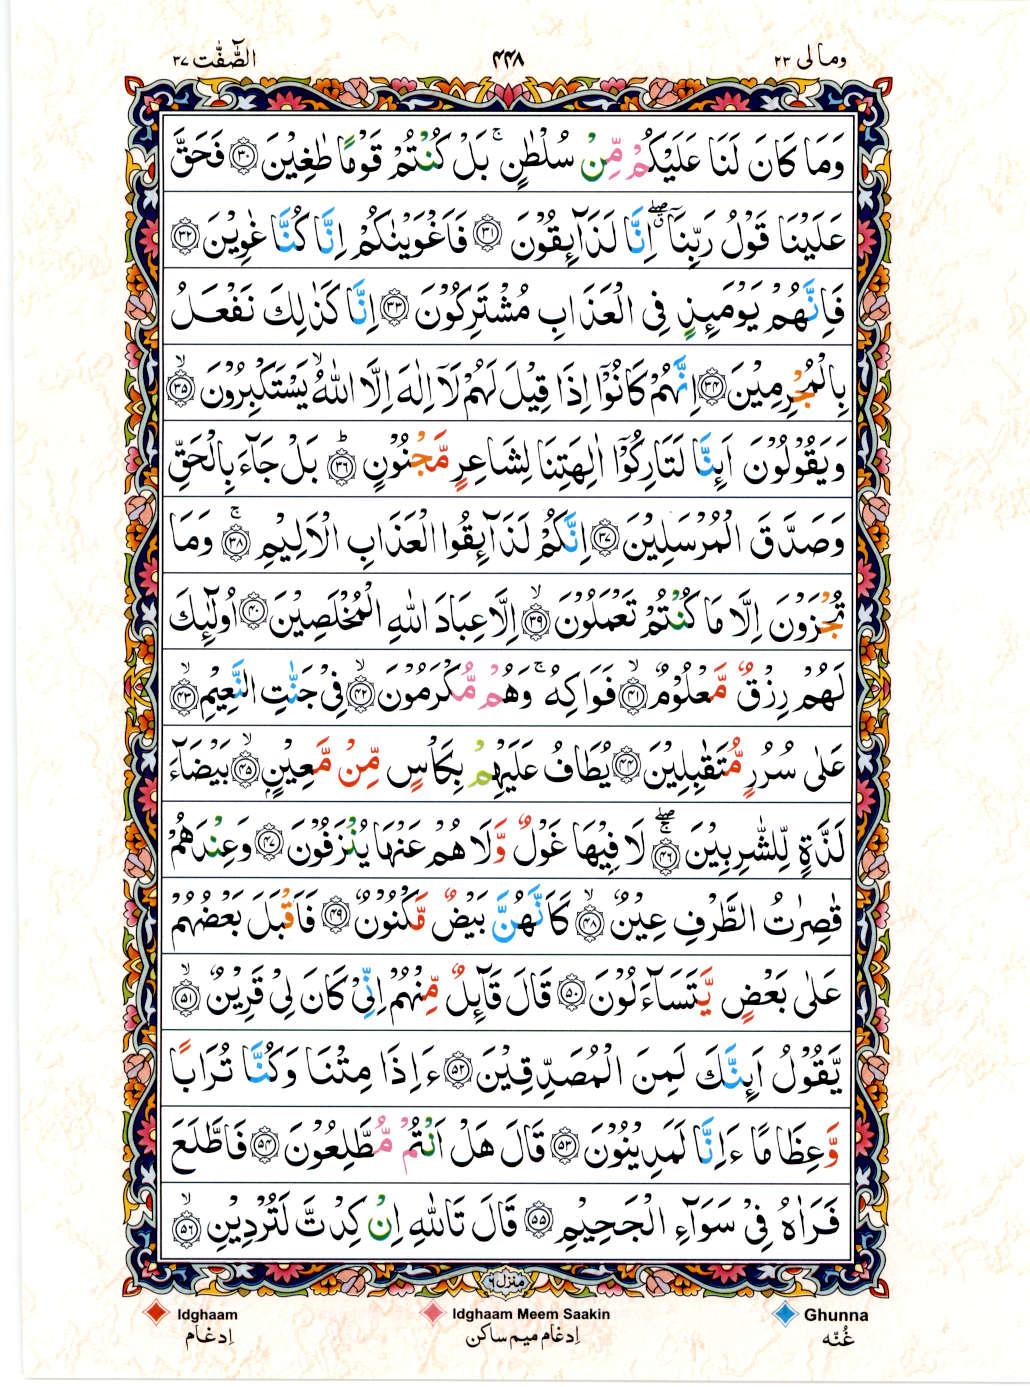 ومالی ۲۳
۴۴۸
الصّٰٓفّٰت ۳۷
وَمَا كَانَ لَنَا عَلَيْكُمْ مِّنْ سُلْطٰنٍ ۚ بَلْ كُنْتُمْ قَوْمًا طٰغِيْنَ ۝۳۰ فَحَقَّ
عَلَيْنَا قَوْلُ رَبِّنَاۤ ۖۗ اِنَّا لَذَآئِقُوْنَ ۝۳۱ فَاَغْوَيْنٰكُمْ اِنَّا كُنَّا غٰوِيْنَ ۝۳۲
فَاِنَّهُمْ يَوْمَئِذٍ فِى الْعَذَابِ مُشْتَرِكُوْنَ ۝۳۳ اِنَّا كَذٰلِكَ نَفْعَلُ
بِالْمُجْرِمِيْنَ ۝۳۴ اِنَّهُمْ كَانُوْۤا اِذَا قِيْلَ لَهُمْ لَاۤ اِلٰهَ اِلَّا اللّٰهُ ۙ يَسْتَكْبِرُوْنَ ۝۳۵ ۙ
وَيَقُوْلُوْنَ اَئِنَّا لَتَارِكُوْۤا اٰلِهَتِنَا لِشَاعِرٍ مَّجْنُوْنٍ ۝۳۶ ؕ بَلْ جَآءَ بِالْحَقِّ
وَصَدَّقَ الْمُرْسَلِيْنَ ۝۳۷ اِنَّكُمْ لَذَآئِقُوا الْعَذَابِ الْاَلِيْمِ ۝۳۸ ۚ وَمَا
تُجْزَوْنَ اِلَّا مَا كُنْتُمْ تَعْمَلُوْنَ ۝۳۹ ۙ اِلَّا عِبَادَ اللّٰهِ الْمُخْلَصِيْنَ ۝۴۰ اُولٰٓئِكَ
لَهُمْ رِزْقٌ مَّعْلُوْمٌ ۝۴۱ ۙ فَوَاكِهُ ۚ وَهُمْ مُّكْرَمُوْنَ ۝۴۲ ۙ فِىْ جَنّٰتِ النَّعِيْمِ ۝۴۳ ۙ
عَلٰى سُرُرٍ مُّتَقٰبِلِيْنَ ۝۴۴ يُطَافُ عَلَيْهِمْ بِكَاْسٍ مِّنْ مَّعِيْنٍۭ ۝۴۵ ۙ بَيْضَآءَ
لَذَّةٍ لِّلشّٰرِبِيْنَ ۝۴۶ ۖۚ لَا فِيْهَا غَوْلٌ وَّلَا هُمْ عَنْهَا يُنْزَفُوْنَ ۝۴۷ وَعِنْدَهُمْ
قٰصِرٰتُ الطَّرْفِ عِيْنٌ ۝۴۸ ۙ كَاَنَّهُنَّ بَيْضٌ مَّكْنُوْنٌ ۝۴۹ فَاَقْبَلَ بَعْضُهُمْ
عَلٰى بَعْضٍ يَّتَسَآءَلُوْنَ ۝۵۰ قَالَ قَآئِلٌ مِّنْهُمْ اِنِّىْ كَانَ لِىْ قَرِيْنٌ ۝۵۱ ۙ
يَّقُوْلُ اَئِنَّكَ لَمِنَ الْمُصَدِّقِيْنَ ۝۵۲ ءَاِذَا مِتْنَا وَكُنَّا تُرَابًا
وَّعِظَامًا ءَاِنَّا لَمَدِيْنُوْنَ ۝۵۳ قَالَ هَلْ اَنْتُمْ مُّطَّلِعُوْنَ ۝۵۴ فَاطَّلَعَ
فَرَاٰهُ فِىْ سَوَآءِ الْجَحِيْمِ ۝۵۵ قَالَ تَاللّٰهِ اِنْ كِدْتَّ لَتُرْدِيْنِ ۝۵۶ ۙ
منزل ۶
Idghaam
Idghaam Meem Saakin
Ghunna
اِدغام
اِدغام میم ساکن
غُنّه